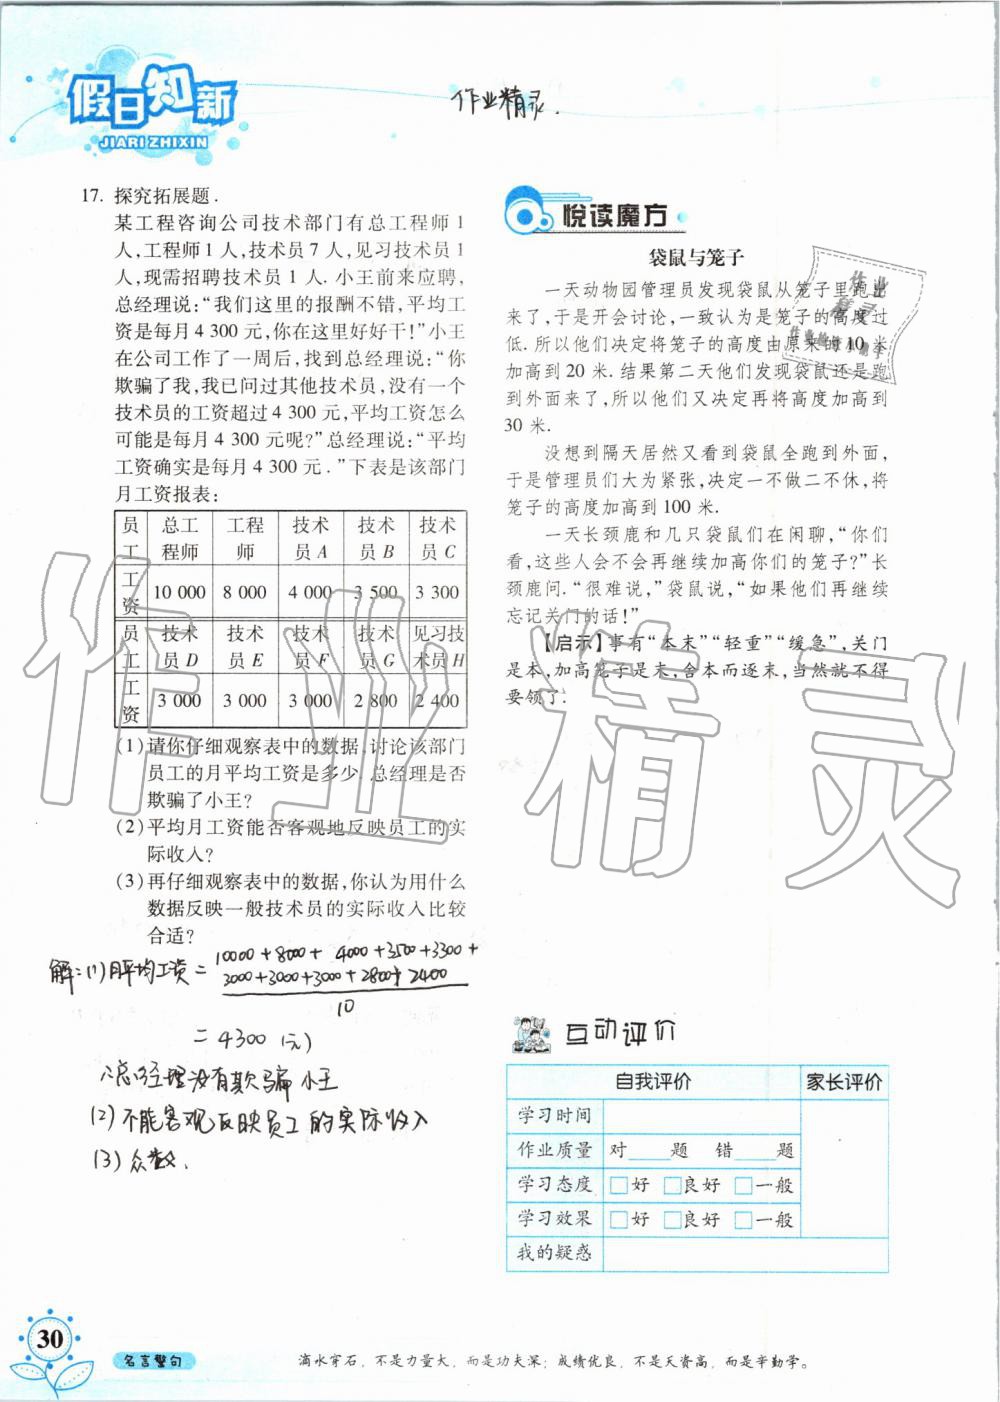 假日知新
JIARI ZHIXIN
作业精灵.
17. 探究拓展题.
某工程咨询公司技术部门有总工程师1
人,工程师1人,技术员7人,见习技术员1
人,现需招聘技术员1人.小王前来应聘,
总经理说:“我们这里的报酬不错,平均工
资是每月4 300元,你在这里好好干!”小王
在公司工作了一周后,找到总经理说:“你
欺骗了我,我已问过其他技术员,没有一个
技术员的工资超过4 300元,平均工资怎么
可能是每月4 300元呢?”总经理说:“平均
工资确实是每月4 300元.”下表是该部门
月工资报表:
员工 总工程师 工程师 技术员A 技术员B 技术员C
工资 10 000 8 000 4 000 3 500 3 300
员工 技术员D 技术员E 技术员F 技术员G 见习技术员H
工资 3 000 3 000 3 000 2 800 2 400
(1)请你仔细观察表中的数据,讨论该部门
员工的月平均工资是多少.总经理是否
欺骗了小王?
(2)平均月工资能否客观地反映员工的实
际收入?
(3)再仔细观察表中的数据,你认为用什么
数据反映一般技术员的实际收入比较
合适?
解:(1)月平均工资=
10000+8000+4000+3500+3300+
3000+3000+3000+2800+2400
10
=4300(元)
∴总经理没有欺骗小王
(2)不能客观反映员工的实际收入
(3)众数.
悦读魔方
袋鼠与笼子
一天动物园管理员发现袋鼠从笼子里跑出
来了,于是开会讨论,一致认为是笼子的高度过
低.所以他们决定将笼子的高度由原来的10米
加高到20米.结果第二天他们发现袋鼠还是跑
到外面来了,所以他们又决定再将高度加高到
30米.
没想到隔天居然又看到袋鼠全跑到外面,
于是管理员们大为紧张,决定一不做二不休,将
笼子的高度加高到100米.
一天长颈鹿和几只袋鼠们在闲聊,“你们
看,这些人会不会再继续加高你们的笼子?”长
颈鹿问.“很难说,”袋鼠说,“如果他们再继续
忘记关门的话!”
【启示】事有“本末”“轻重”“缓急”,关门
是本,加高笼子是末,舍本而逐末,当然就不得
要领了.
作业精灵
作业
精灵
互动评价
自我评价 家长评价
学习时间
作业质量 对____题 错____题
学习态度 □好 □良好 □一般
学习效果 □好 □良好 □一般
我的疑惑
30
名言警句
滴水穿石,不是力量大,而是功夫深;成绩优良,不是天资高,而是辛勤学。